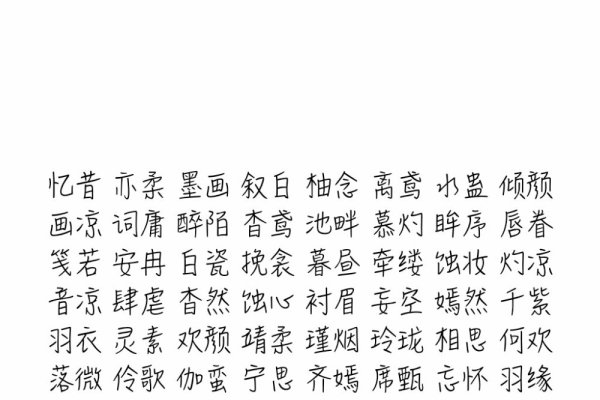 忆昔 亦柔 墨画 叙白 柚念 离鸢 水蛊 倾颜
画凉 词庸 醉陌 杳鸢 池畔 慕灼 眸序 唇眷
笺若 安冉 白瓷 挽衾 暮昼 牵缕 蚀妆 灼凉
音凉 肆虐 杳然 蚀心 衬眉 妄空 嫣然 千紫
羽衣 灵素 欢颜 靖柔 瑾烟 玲珑 相思 何欢
落微 伶歌 伽蛮 宁思 齐嫣 席甄 忘怀 羽缘